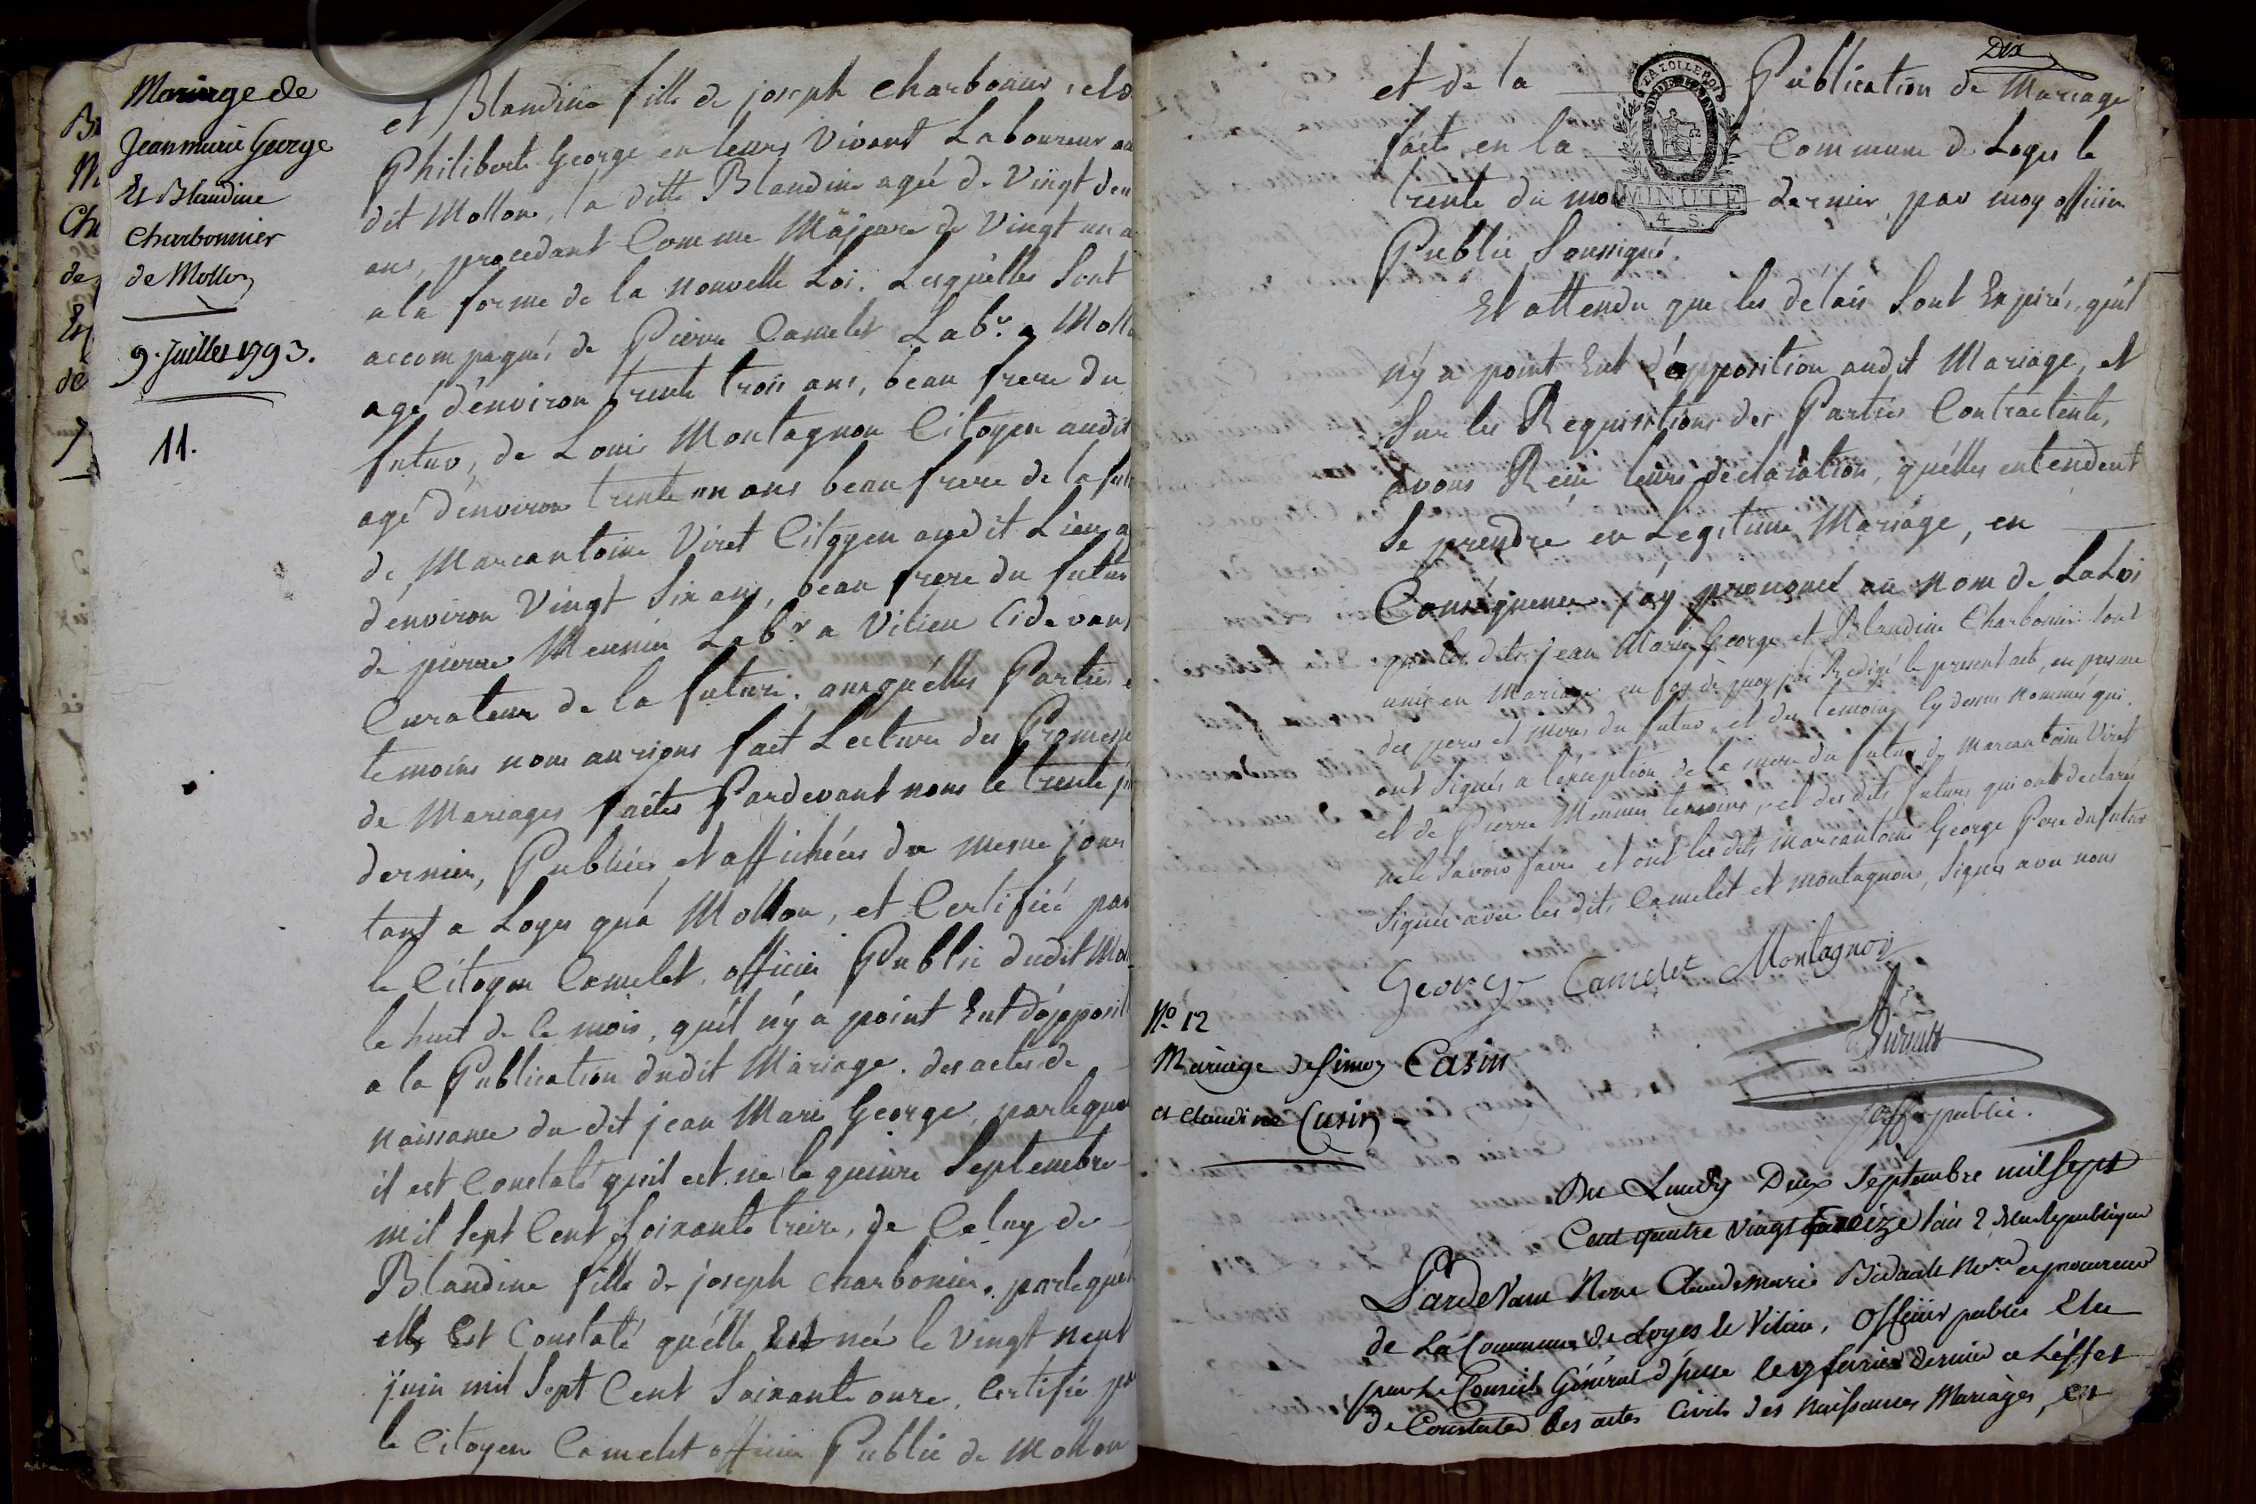 Mariage de
Jeanmarie George
Et Blandine
Charbonnier
de Mollon
9. Juillet 1793.
11.
et Blandine fille de joseph charbonier, et de
Philiberte George en leurs vivant Laboureur au
dit Mollon, la ditte Blandine agée de Vingt deux
ans, procedant Comme Majeure de Vingt un a
a la forme de la nouvelle Loi. Lesquelles sont
accompagnés de Pierre Camelet Labr a Mollon
agé d'environ trente trois ans, beau frere du
futur, de Louis Montagnon Citoyen audit
agé d'environ trente un ans beau frere de la fut
de Marcantoine Viret Citoyen audit Lieu a
d'environ Vingt Six ans, beau frere du futur
de pierre Meunier Labr a Vilieu Cidevant
Curateur de la future. auxquelles Parties e
temoins nous aurions fait Lecture des Promesse
de Mariages faites Pardevant nous le trente j
dernier, Publiées et affichées du mesme jour
tant a Loyes qu'a Mollon, et Certifié par
le Citoyen Camelet, officier Public dudit Mol
le huit de Ce mois, qu'il n'y a point Eut d'opposit
a la Publication dudit Mariage. des actes de
naissance du dit jean Marie George, par lequel
il est Constaté qu'il est né le quinze Septembre
mil Sept Cent Soixante treize, de Celuy de
Blandine fille de joseph charbonier, par lequel
elle Est Constaté qu'elle Est née le Vingt neuf
juin mil Sept Cent Soixante onze, Certifié par
le Citoyen Camelet officier Public de Mollon
Dix
et de la Publication de Mariage
faite en la Commune de Loyes le
trente du mois dernier, par moy officier
MINUTE
4. S.
Public Soussigné.
Et attendu que les délais Sont Expirés, qu'il
n'y a point Eut d'opposition audit Mariage, et
Sur les Requisitions des Parties Contractente,
avons Recu leurs declaration, qu'elles entendent
Se prendre en Legitime Mariage, en
Conséquence j'ay prononcé au nom de La Loi
que les dits jean Marie George et Blandine Charbonier sont
unis en Mariage en foy de quoy j'ai Redigé le present acte, en presence
des peres et meres du futur, et des temoins Cy dessus nommés qui
ont Signés a l'exception de la mere du futur de Marcantoine Viret
et de Pierre Meunier temoins, et des dits futurs qui ont declarés
ne le Savoir faire et ont les dits marcantoine George Pere du futur
Signés avec les dits Camelet et montagnon, Signés avec nous
George Camelet Montagnon
Bidault
off. public.
No 12
Mariage de Simon Casin
et Claudine Cusin
Du Lundy Deux Septembre mil Sept
Cent quatre vingt treize l'an 2 de la Republique
Pardevant Nous Claudemarie Bidault Nre et procureur
de La Commune de Loyes le Vilieu, Officier public Elu
par Le Conseil Général d'jcelle le 17 fevrier dernier a L'effet
de Constater Les actes Civils des Naissances Mariages, et